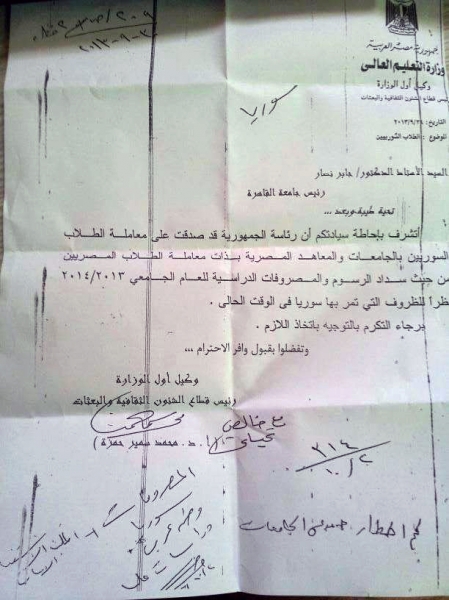 جمهورية مصر العربية
وزارة التعليم العالى
وكيل أول الوزارة
رئيس قطاع الشئون الثقافية والبعثات
سوريا
التاريخ:
الموضوع : الطلاب السوريين
السيد الأستاذ الدكتور/ جابر نصار
رئيس جامعة القاهرة
تحية طيبة وبعد ...
أتشرف بإحاطة سيادتكم أن رئاسة الجمهورية قد صدقت على معاملة الطلاب
السوريين بالجامعات والمعاهد المصرية بذات معاملة الطلاب المصريين
من حيث سداد الرسوم والمصروفات الدراسية للعام الجامعى ٢٠١٤/٢٠١٣
نظراً للظروف التي تمر بها سوريا فى الوقت الحالى .
برجاء التكرم بالتوجيه باتخاذ اللازم .
وتفضلوا بقبول وافر الاحترام ...
وكيل أول الوزارة
رئيس قطاع الشئون الثقافية والبعثات
مع خالص
تحياتى
(أ. د. محمد سمير حمزة)
٣١٤
١٠/٢